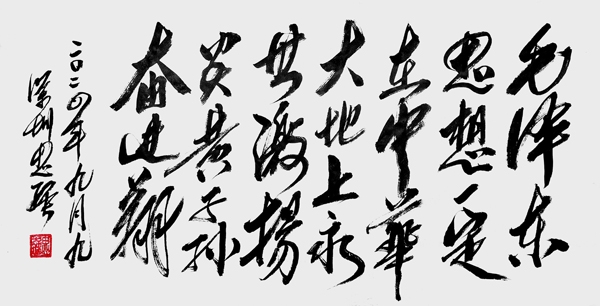 毛泽东
思想一定
在中華
大地上永
世激揚
炎黄子孙
奋进翔
二〇二四年九月九
深圳